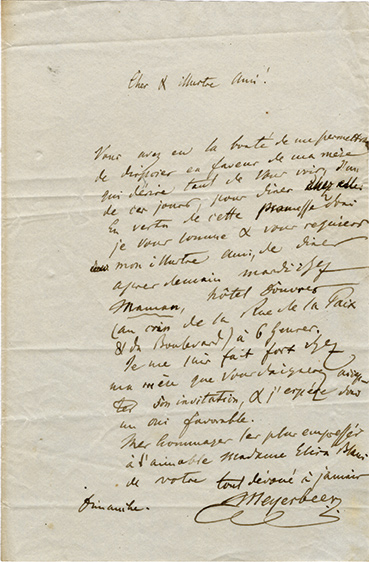 Cher & illustre Ami!
Vous avez eu la bonté de me permettre
de disposer en faveur de ma mère
qui désire tant de vous voir, d'un
de ces jours, pour diner chez elle.
En vertu de cette promesse donc
je vous somme & vous requiers
mon illustre ami, de diner
après demain mardi chez
Maman, hôtel Douvres
(au coin de la Rue de la Paix
& du Boulevard) à 6 heures.
Je me suis fait fort chez
ma mère que vous daignerez accep-
ter son invitation, & j'espère donc
un oui favorable.
Mes hommages les plus empressés
à l'aimable Madame Elisa
de votre tout dévoué à jamais
Meyerbeer
Dimanche.